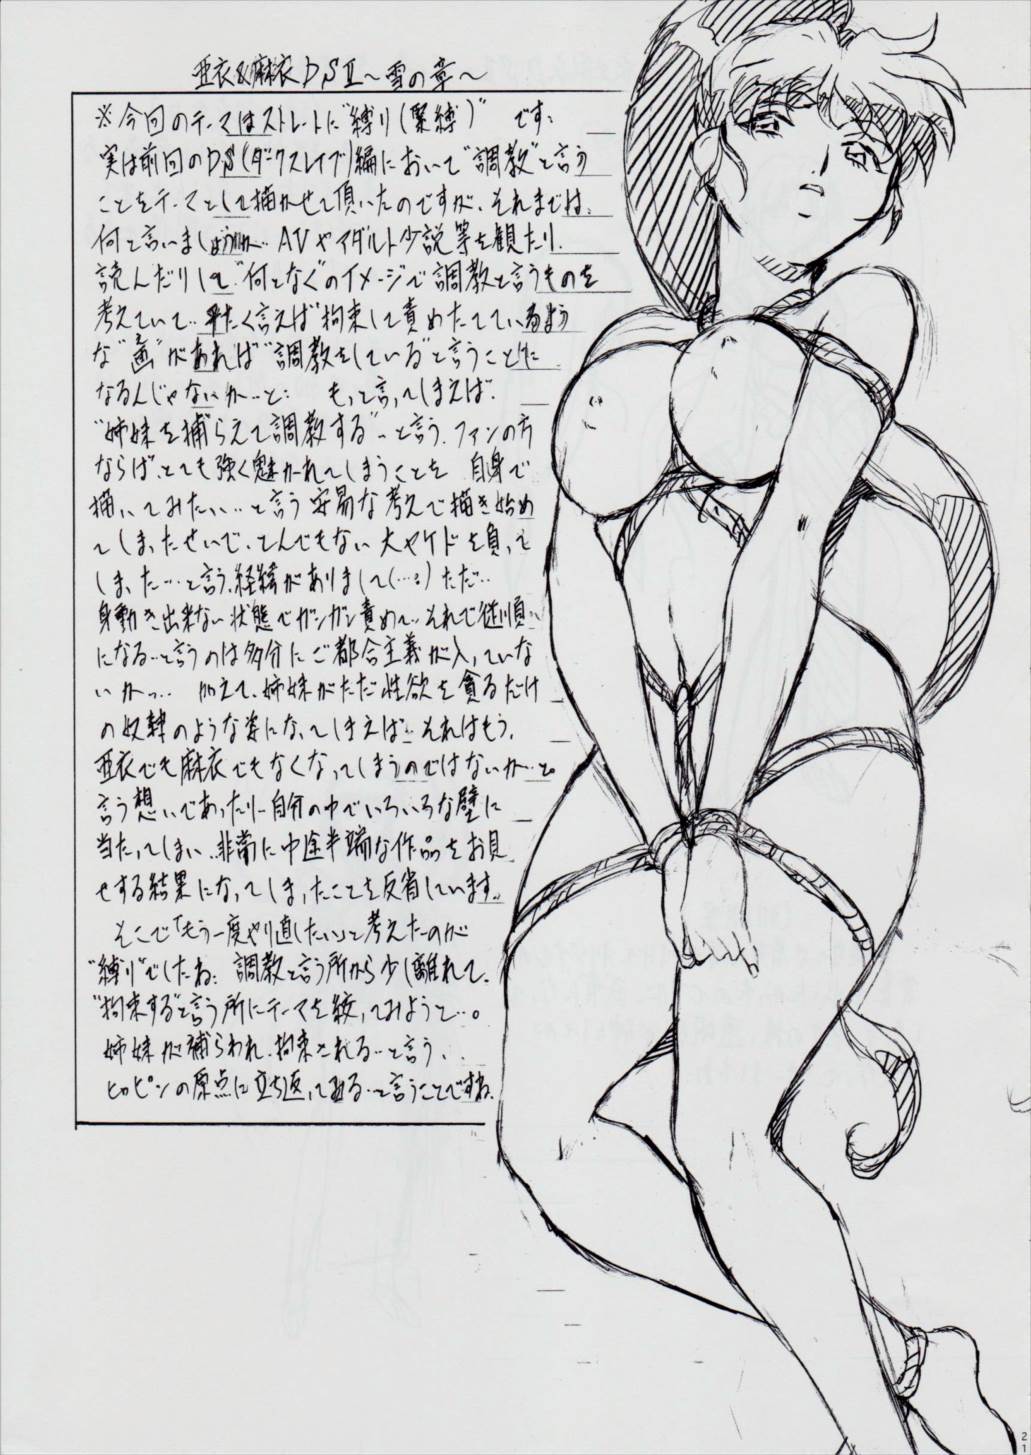 亜衣&麻衣DSⅡ～雪の章～
※今回のテーマはストレートに"縛り(緊縛)"です…
実は前回のDS(ダークスレイブ)編において"調教"と言う
ことをテーマとして描かせて頂いたのですが、それまでは、
何と言いましょうか…AVやアダルト小説等を観たり、
読んだりして"何となく"のイメージで調教と言うものを
考えていて…平たく言えば"拘束して責めたてているよう
な"画"があれば"調教をしている"と言うことに
なるんじゃないか…と… もっと言ってしまえば、
"姉妹を捕らえて調教する"…と言う、ファンの方
ならば、とても強く魅かれてしまうことを 自身で
描いてみたい…と言う安易な考えで描き始め
てしまったせいで、とんでもない大ヤケドを負って
しまった…と言う経緯がありまして(…) ただ…
身動き出来ない状態でガンガン責めて…それで従順…
になる…と言うのは多分にご都合主義が入っていな
いかっ… 加えて、姉妹がただ性欲を貪るだけ
の奴隷のような姿になってしまえば…それはもう、
亜衣でも麻衣でもなくなってしまうのではないか…と。
言う想いであったり…自分の中でいろいろな壁に
当たってしまい…非常に中途半端な作品をお見
せする結果になってしまったことを反省しています。
そこで「もう一度やり直したい」と考えたのが
"縛り"でしたね… 調教と言う所から少し離れて、
"拘束する"と言う所にテーマを絞ってみようと…。
姉妹が捕らわれ、拘束される…と言う、
ヒロピンの原点に立ち返ってみる…と言うことですね。
21